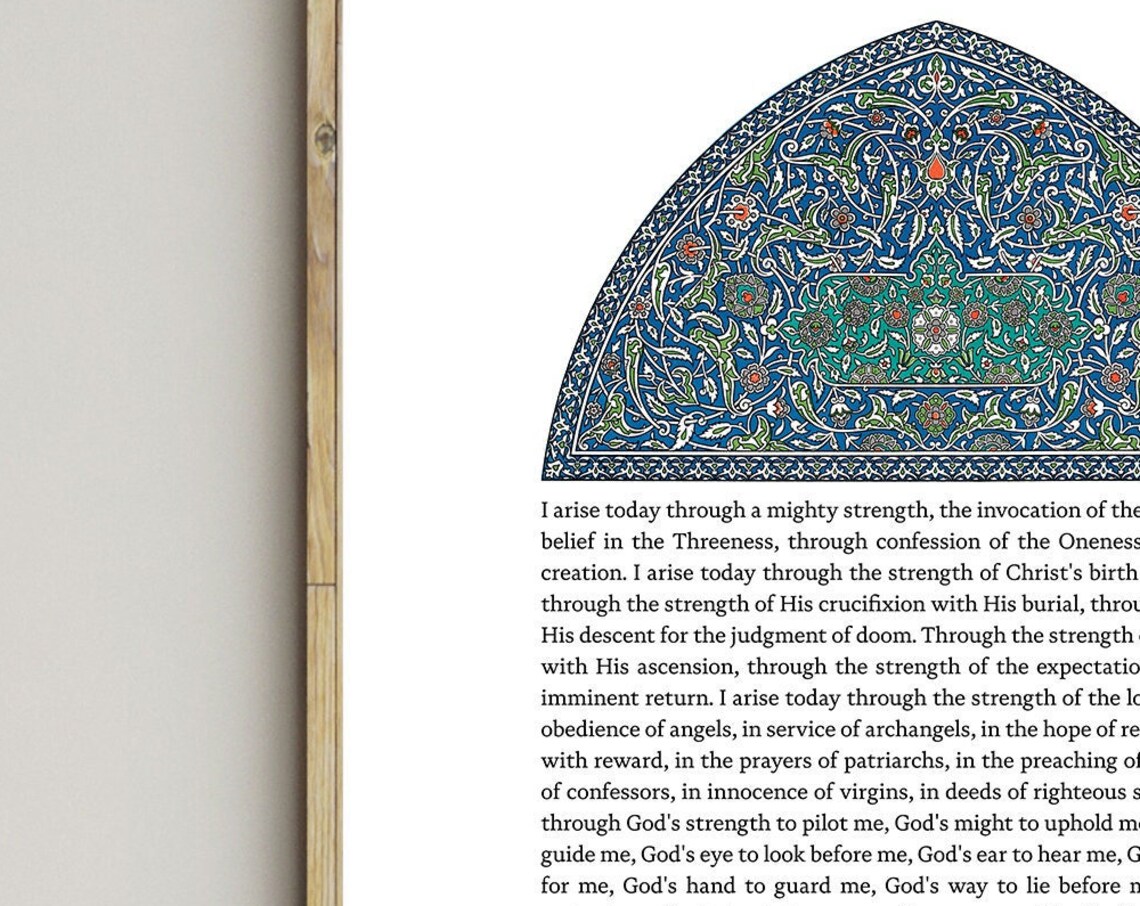 I arise today through a mighty strength, the invocation of the
belief in the Threeness, through confession of the Oneness
creation. I arise today through the strength of Christ's birth
through the strength of His crucifixion with His burial,
His descent for the judgment of doom. Through the strength
with His ascension, through the strength of the
imminent return. I arise today through the strength of the
obedience of angels, in service of archangels, in the hope of
with reward, in the prayers of patriarchs, in the preaching
of confessors, in innocence of virgins, in deeds of righteous
through God's strength to pilot me, God's might to uphold
guide me, God's eye to look before me, God's ear to hear me,
for me, God's hand to guard me, God's way to lie before